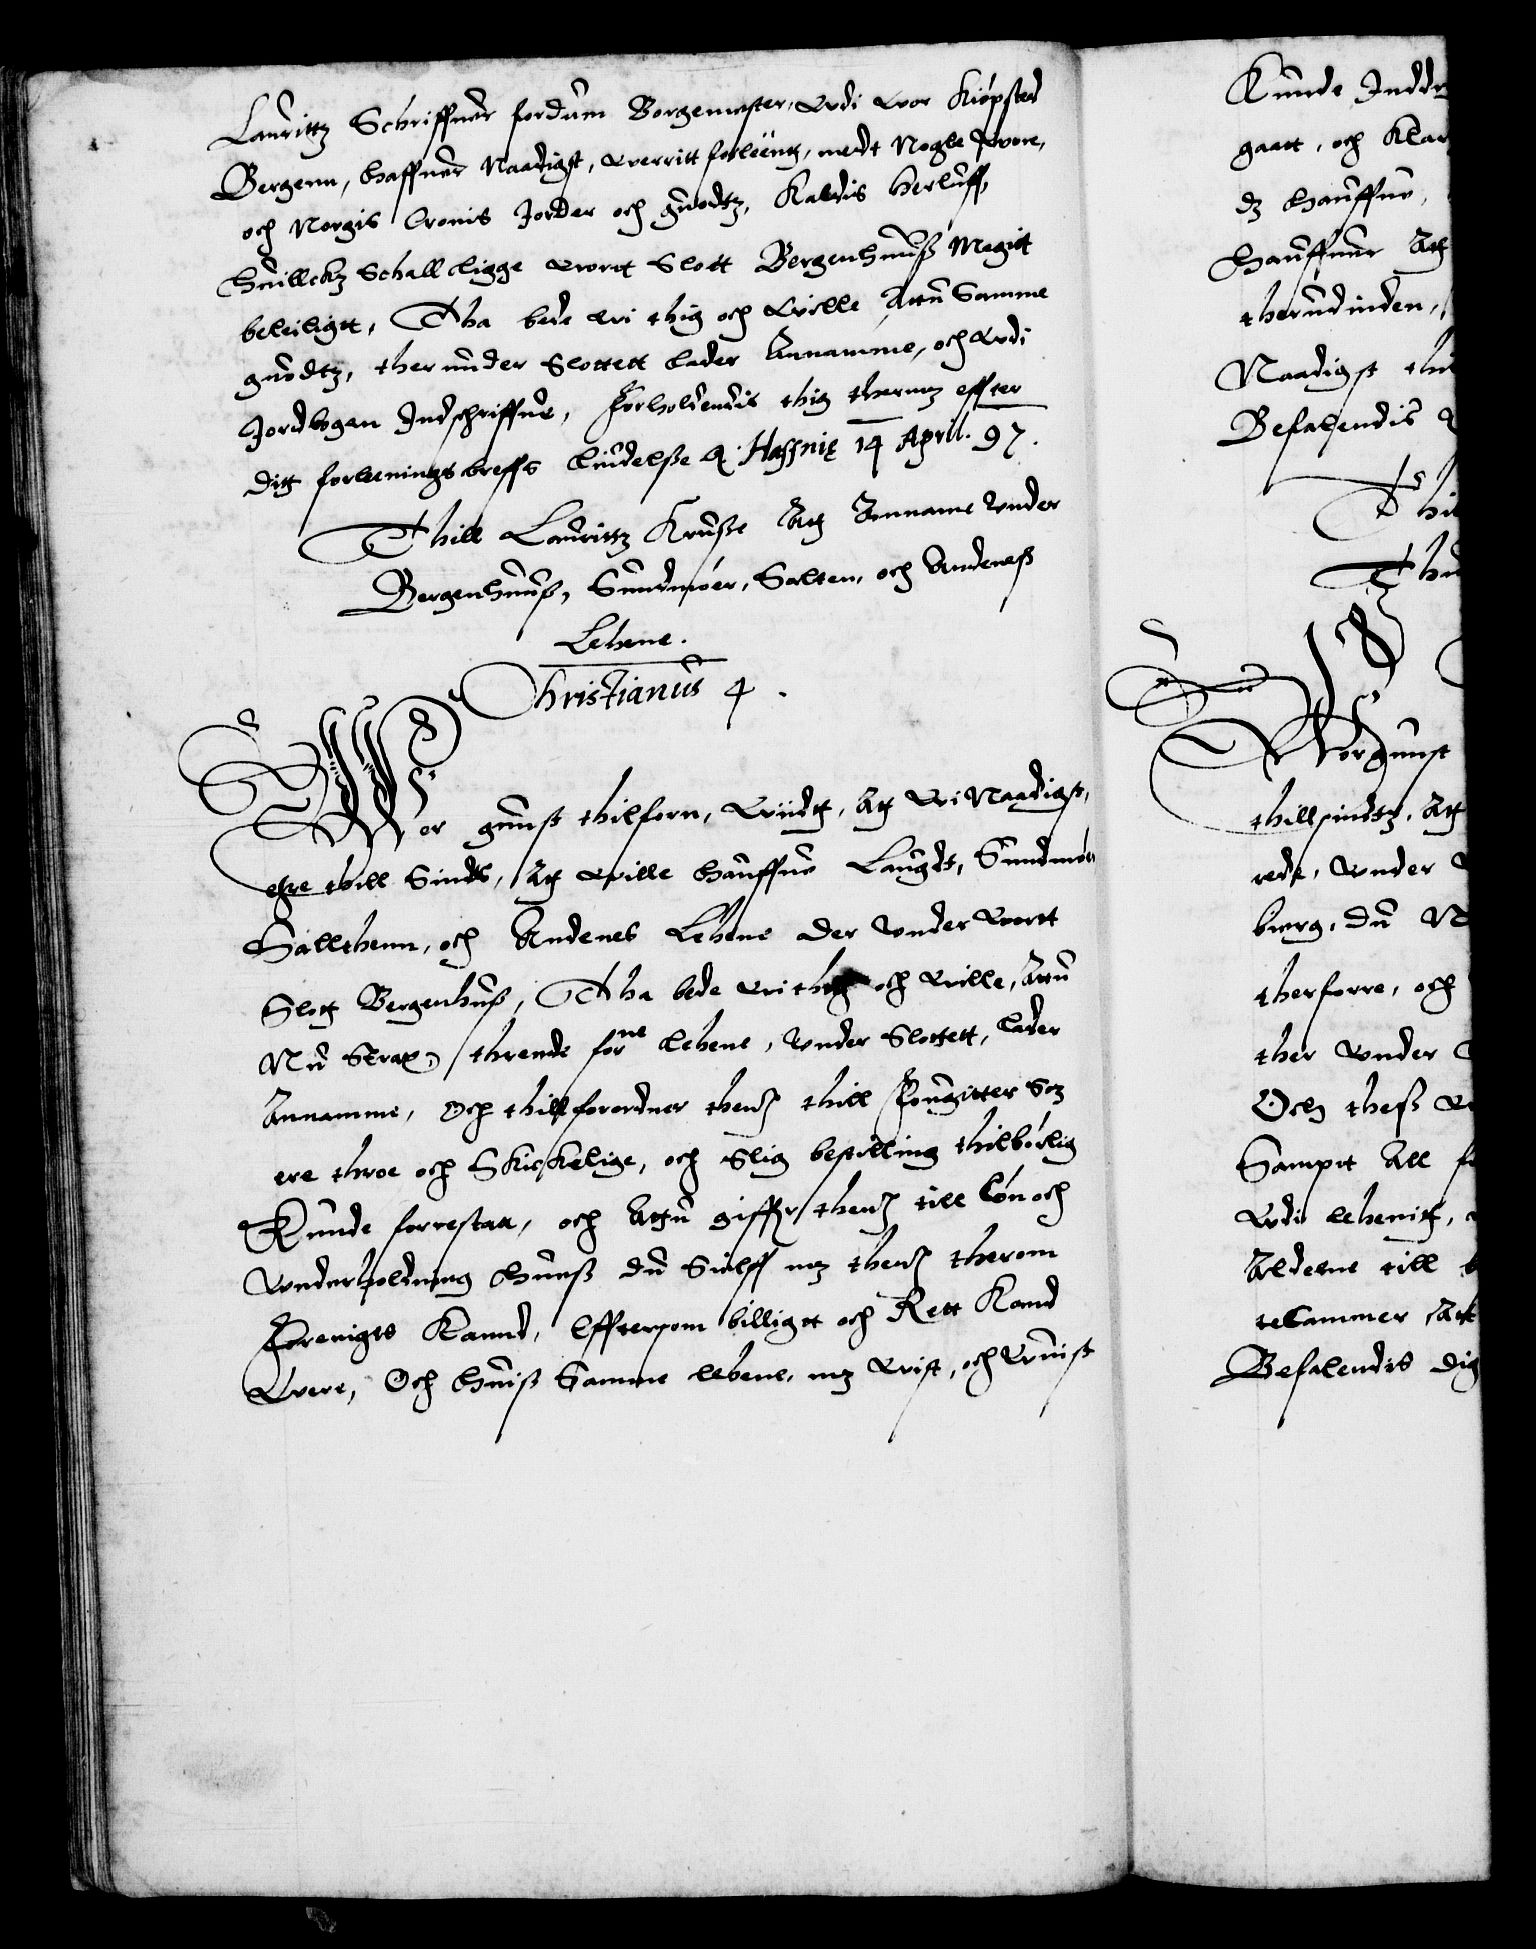 Lauritz Schriffuer fordum Borgemester, Vdi vor Kiøpsted
Bergenn, haffuer Naadigst, werritt forleentt, medt Nogle Wore,
och Norgis Cronis Jorder och guodtz, Kaldis Herluff,
huilckz Schall ligge wortt Slott Bergenhuuß Megitt
beleiligtt, Tha bede wi thig och wille, Attu Samme
guodtz, ther under Slottett lader Annamme, och vdi
Jordbogen Indschriffue, Forholdendis thig thermz effter
dit forleenings breffs liudelße Ex Haffniæ 14 April. 97.
Thill Lauritz Kruße At Anname Vnder
Bergenhuuß, Sundmøer, Salten, och Andeneß
Lehene.
Christianus 4.
Wor gunst thilforn, Wiidt, At Wi Naadigst,
ere thill Sinds, At wille hauffue Laugdt, Sundmøer
Sallthenn, och Andenes Lehene der Vnder Vortt
Slot Bergenhuß, Tha bede wi thig och wille, Attu
Nu Strax, thrende forne lehene, Vnder Slottett, lader
Annamme, Och thillforordner thend thill Fougitter Som
ere throe och Skickelige, och Slig bestilling thilbørlig
Kunde forrestaa, och Attu giffuer thend till løn och
Vnderholdning huuess du Sielff mz thend therom
Forenigts Kannd, Efftersom billigtt och Rett Kand
Vere, Och huiß Samme lehene, mz Vist, och Vuist
Kunde Indd
gaatt, och Klar
dz hauffue,
Hauffuer At
therudinden,
Naadigst thi
Befalendis
Thi
Thu
Wor gunst
thillsindtz, At
rede, Vnder
berg, du N
therforre, och
ther Vnder
Och theß
Sampt All
Vdi lehenit,
Alderne till
teCammer, Att
Befalendis dig